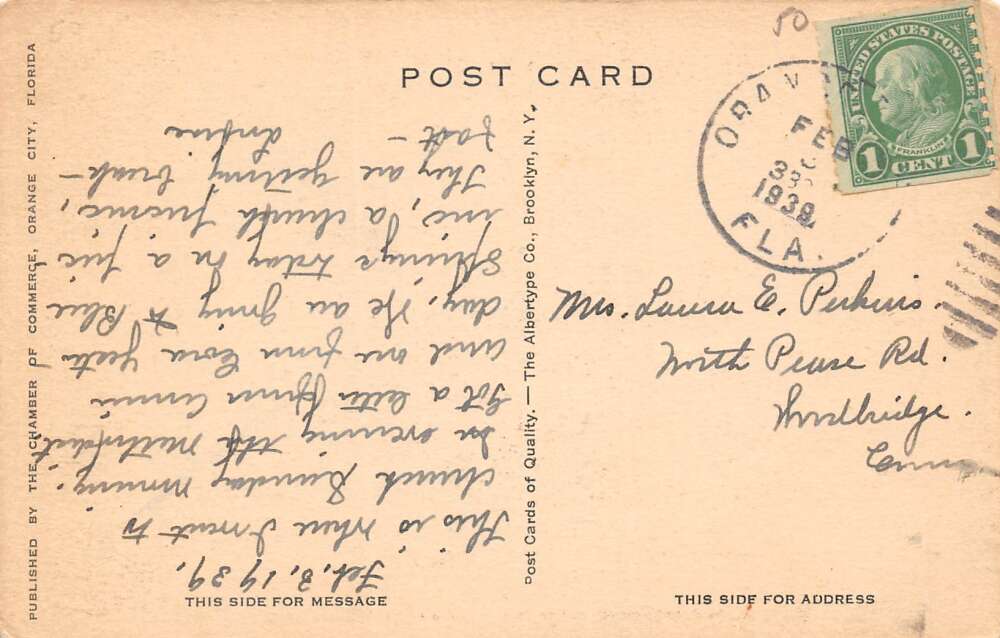 POST CARD
PUBLISHED BY THE CHAMBER OF COMMERCE, ORANGE CITY, FLORIDA
Post Cards of Quality. — The Albertype Co., Brooklyn, N. Y.
UNITED STATES POSTAGE
FRANKLIN
1 CENT 1
FEB
1939
FLA.
Feb. 3, 1939.
This is where I went to
church Sunday morning.
In evening the Methodist
Got a letter from Annie
and one from Cora Yeats
day. We are going to Blue
Springs today on a pic-
nic, a church picnic,
They are getting break-
fast —
Mrs. Laura E. Perkins.
North Pease Rd.
Woodbridge.
Conn
THIS SIDE FOR MESSAGE
THIS SIDE FOR ADDRESS